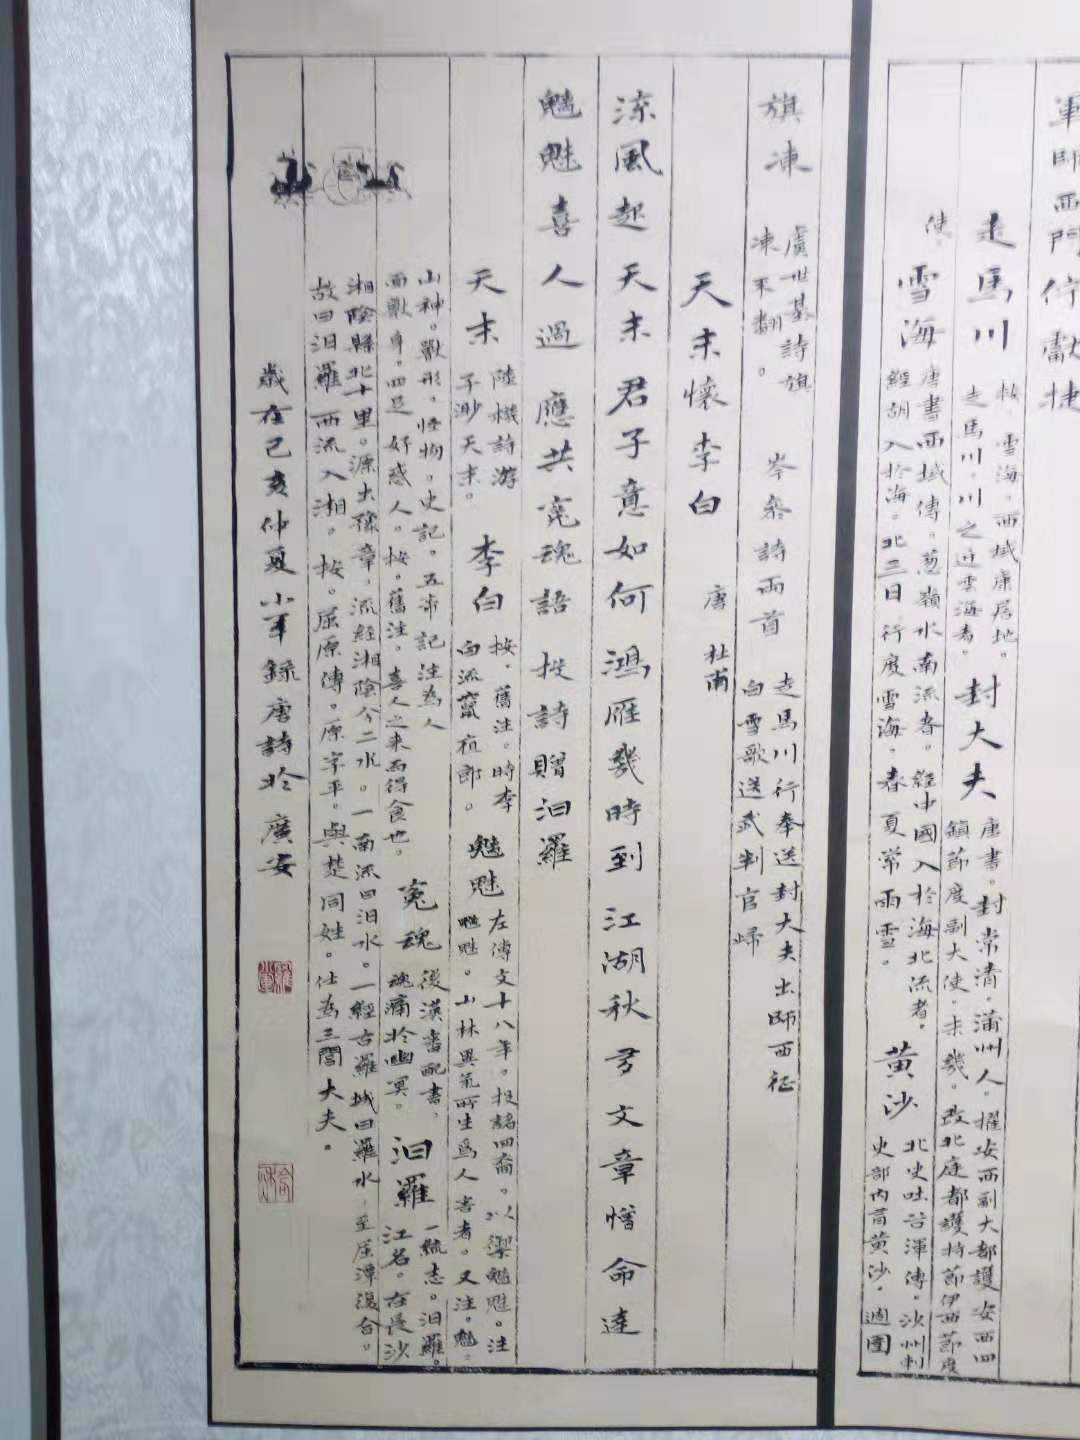 軍師西門佇獻捷
走馬川 按雪海西域康居地
走馬川川之近雪海者
封大夫 唐書封常清蒲州人擢安西副大都護安西四
鎮節度副大使未幾改北庭都護持節伊西節度
使
雪海 唐書西域傳葱嶺水南流者經中國入於海北流者
經胡入於海北三日行度雪海春夏常雨雪
黄沙 北史吐谷渾傳沙州刺
史部內有黄沙週圍
旗凍 虞世基詩旗
凍不翻。
岑參詩兩首 走馬川行奉送封大夫出師西征
白雪歌送武判官歸
天末懷李白 唐 杜甫
涼風起天末君子意如何鴻雁幾時到江湖秋多文章憎命達
魑魅喜人過應共冤魂語投詩贈汨羅
天末 陸機詩游
子渺天末。
李白 按。舊注。時李
白流竄夜郎。
魑魅 左傳文十八年。投諸四裔。以禦魑魅。注
魑魅。山林異氣所生爲人害者。又注。魑。
山神。獸形。怪物。史記。五帝記注為人
面獸身。四足好惑人。按。舊注。喜人之来而得食也。
冤魂 後漢書 書、
魂痛於幽冥。
汨羅 一統志。汨羅。
江名。在長沙
湘陰縣北十里。源出豫章。流經湘陰分二水。一南流曰汨水。一經古羅城曰羅水。至屈潭復合。
故曰汨羅西流入湘。按。屈原傳。原字平。與楚同姓。仕為三閭大夫。
歲在己亥仲夏小軍錄唐詩於廣安